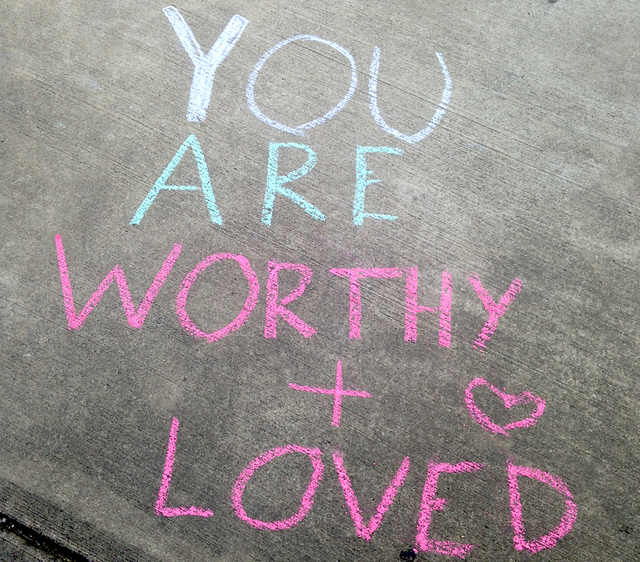 YOU
ARE
WORTHY
+
LOVED